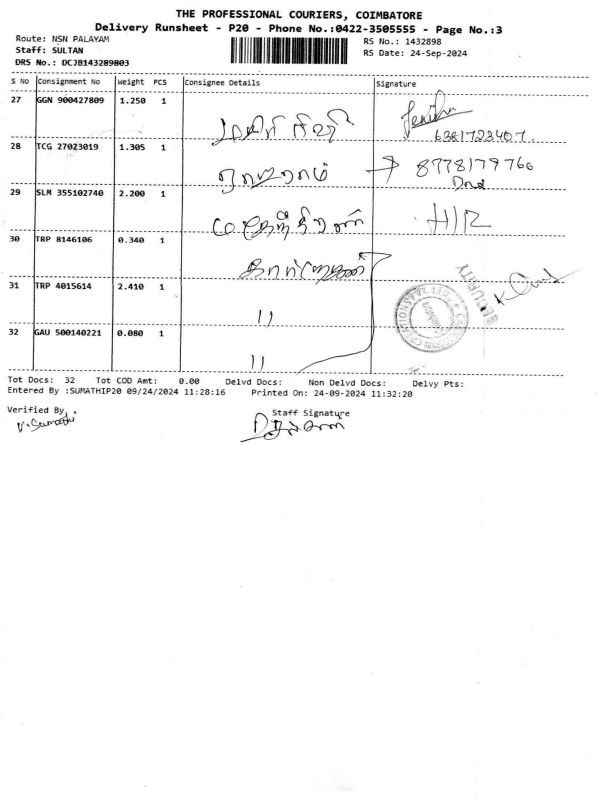 THE PROFESSIONAL COURIERS, COIMBATORE
Delivery Runsheet - P20 - Phone No.:0422-3505555 - Page No.:3
Route: NSN PALAYAM RS No.: 1432898
Staff: SULTAN RS Date: 24-Sep-2024
DRS No.: DCJB143289803
S No Consignment No Weight PCS Consignee Details Signature
27 GGN 900427809 1.250 1
6381723407
28 TCG 27023019 1.305 1
→ 8778179766
29 SLM 355102740 2.200 1
30 TRP 8146106 0.340 1
SECURITY
31 TRP 4015614 2.410 1 11
32 GAU 500140221 0.080 1 11
Tot Docs: 32 Tot COD Amt: 0.00 Delvd Docs: Non Delvd Docs: Delvy Pts:
Entered By :SUMATHIP20 09/24/2024 11:28:16 Printed On: 24-09-2024 11:32:20
Verified By Staff Signature
V. Sumathi